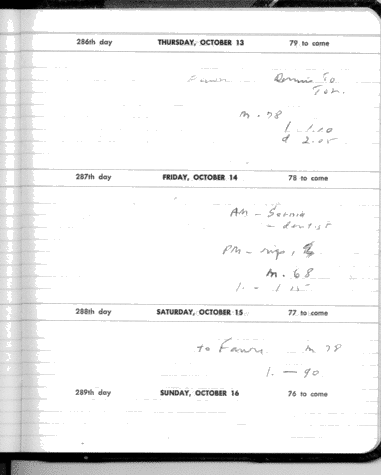 286th day THURSDAY, OCTOBER 13 79 to come
Fawn Bonnie To
Tor.
m. 78
l 1.10
d 2.05
287th day FRIDAY, OCTOBER 14 78 to come
AM - Sarnia
- dentist
PM - nip,
m. 68
l. - 1 15
288th day SATURDAY, OCTOBER 15 77 to come
to Fawn. m 78
l. - 90
289th day SUNDAY, OCTOBER 16 76 to come